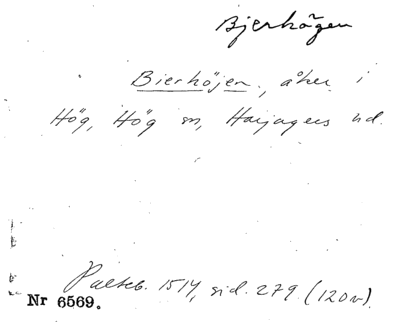 Bjerhögen
Bierhöjen, åker i
Hög, Hög sn, Harjagers hd.
Palteb. 1514, sid. 279. (120v).
Nr 6569.